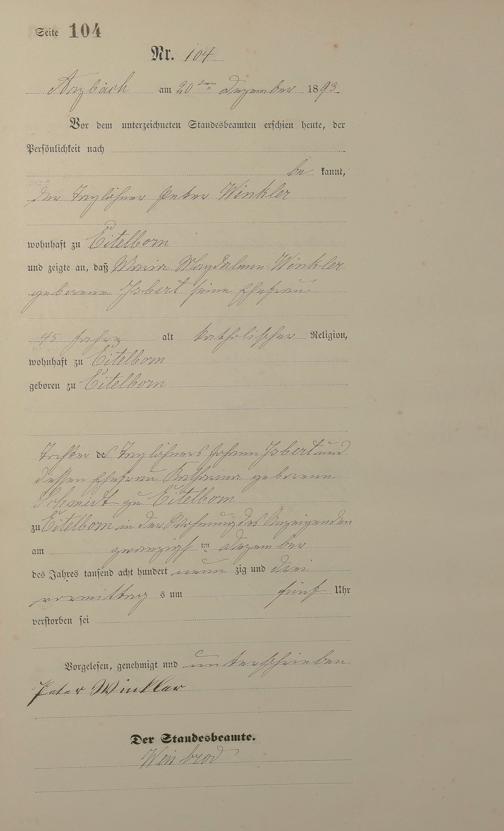 Seite 104
Nr. 104
Arzbach am 20ten Dezember 1893
Vor dem unterzeichneten Standesbeamten erschien heute, der
Persönlichkeit nach
be kannt,
der Taglöhner Peter Winkler
wohnhaft zu Eitelborn
und zeigte an, daß Maria Magdalena Winkler
geborene Isbert seine Ehefrau
45 Jahre alt katholischer Religion,
wohnhaft zu Eitelborn
geboren zu Eitelborn
Tochter des Taglöhners Johann Isbert und
dessen Ehefrau geborene
Schmidt zu Eitelborn
zu Eitelborn in der Wohnung des Anzeigenden
am zwanzigsten Dezember
des Jahres tausend acht hundert neun zig und drei
vormittag s um fünf Uhr
verstorben sei
Vorgelesen, genehmigt und unterschrieben
Peter Winkler
Der Standesbeamte.